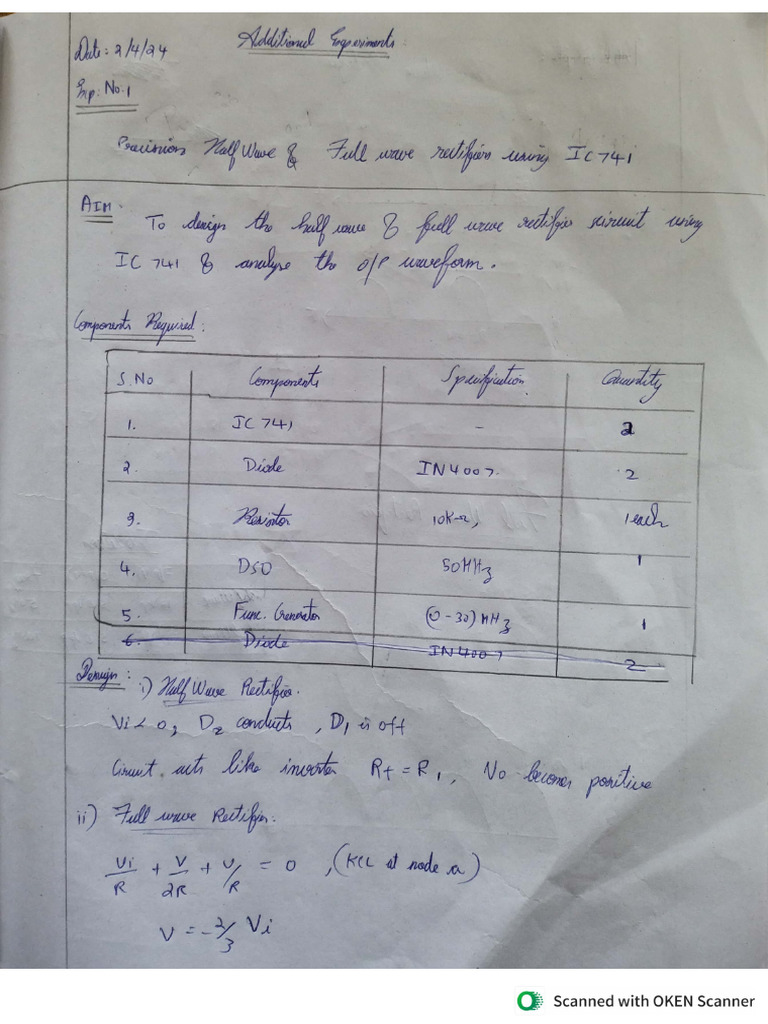 Additional Experiments.
Date: 2/4/24
Exp. No. 1
Precision Half Wave & Full wave rectifiers using IC 741
AIM To design the half wave & full wave rectifier circuit using
IC 741 & analyse the O/P waveform.
Components Required:
S.No Components Specification Quantity
1. IC 741 - 2
2. Diode IN4007. 2
3. Resistor 10KΩ, 1 each
4. DSO 50MHz 1
5. Func. Generator (0-30)MHz 1
6. Diode IN4007 2
Design:
i) Half Wave Rectifier.
Vi<0, D2 conducts, D1 is off
Circuit acts like inverter Rf = R1, Vo becomes positive
ii) Full wave Rectifier.
Vi/R + V/2R + V/R = 0, (KCL at node a)
V = -2/3 Vi
Scanned with OKEN Scanner